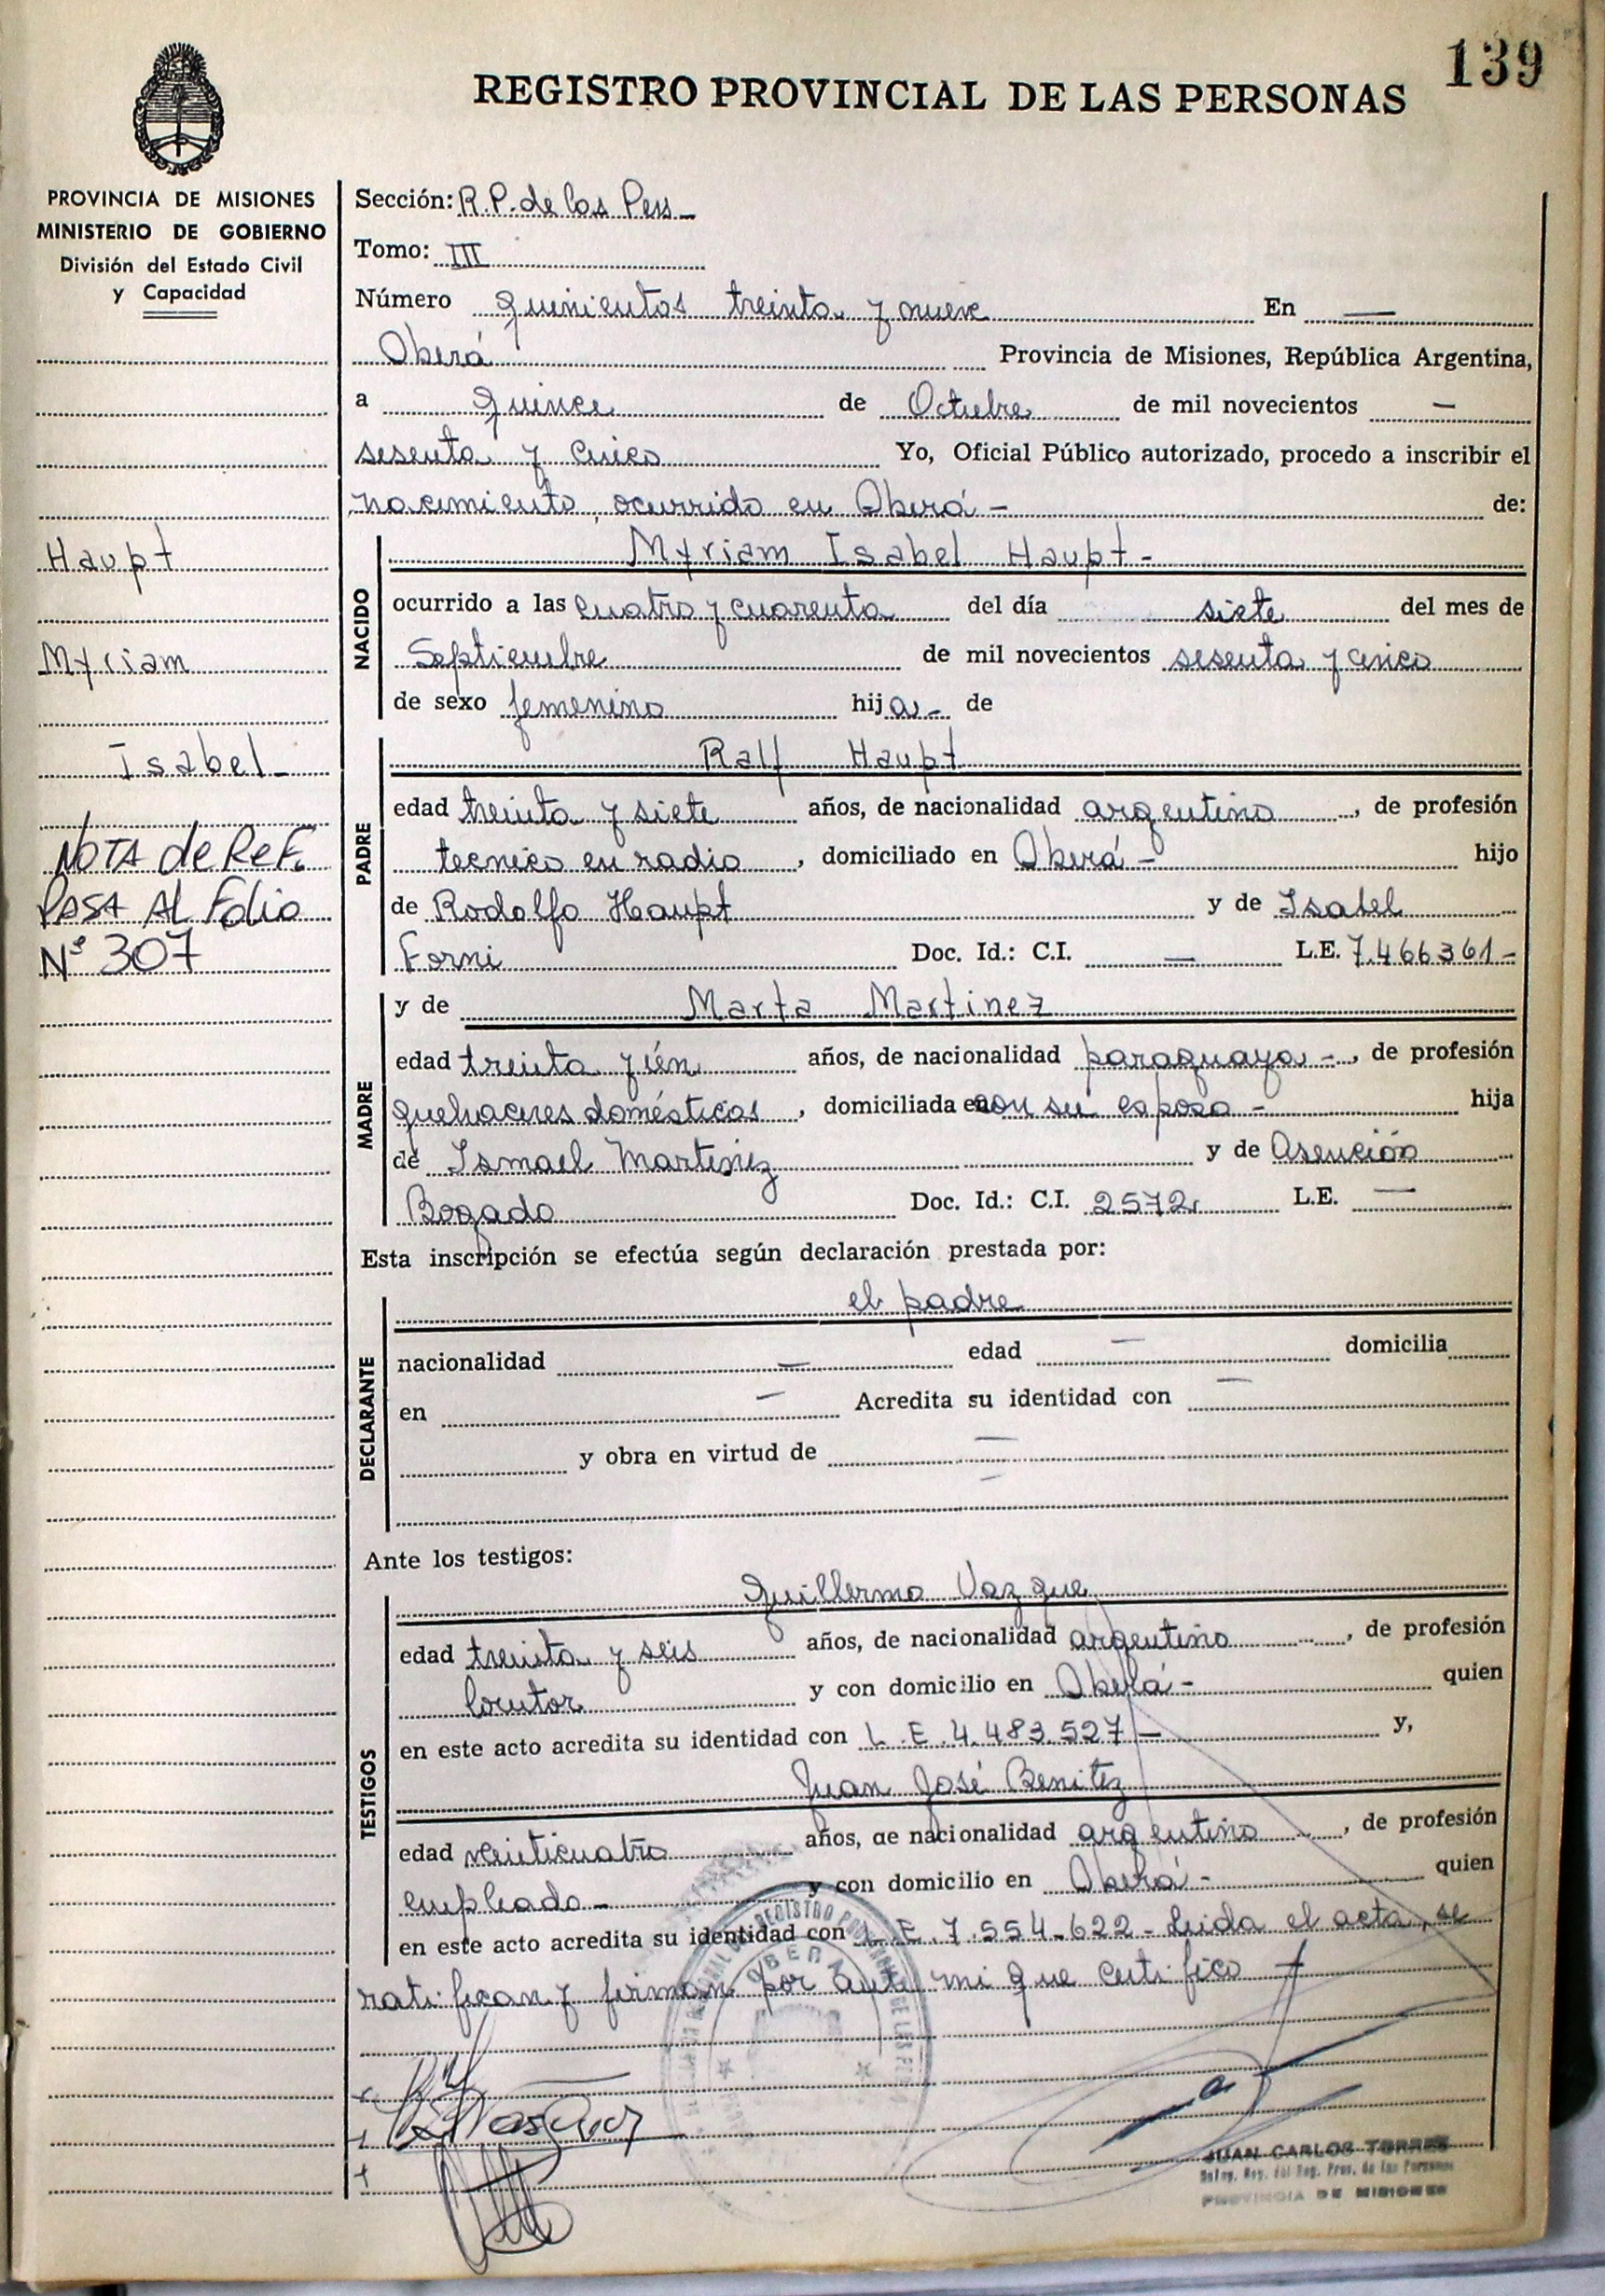 139
REGISTRO PROVINCIAL DE LAS PERSONAS
PROVINCIA DE MISIONES
MINISTERIO DE GOBIERNO
División del Estado Civil
y Capacidad
Haupt
Myriam
Isabel-
NOTA de ReF.
PASA AL Folio
Nº 307
Sección: R.P. de las Pers-
Tomo: III
Número quinientos treinta y nueve En —
Oberá Provincia de Misiones, República Argentina,
a quince de Octubre de mil novecientos —
sesenta y cinco Yo, Oficial Público autorizado, procedo a inscribir el
nacimiento, ocurrido en Oberá - de:
NACIDO
Myriam Isabel Haupt-
ocurrido a las cuatro y cuarenta del día siete del mes de
Septiembre de mil novecientos sesenta y cinco
de sexo femenino hija - de
PADRE
Ralf Haupt
edad treinta y siete años, de nacionalidad argentino, de profesión
tecnico en radio, domiciliado en Oberá - hijo
de Rodolfo Haupt y de Isabel
Forni Doc. Id.: C.I. — L.E. 7.466361-
MADRE
y de Marta Martinez
edad treinta y ún años, de nacionalidad paraguaya -, de profesión
quehaceres domésticos, domiciliada en con su esposo - hija
de Ismael Martinez y de Asención
Bogado Doc. Id.: C.I. 2572 L.E. —
Esta inscripción se efectúa según declaración prestada por:
DECLARANTE
el padre
nacionalidad — edad — domicilia
en — Acredita su identidad con —
y obra en virtud de —
—
Ante los testigos:
TESTIGOS
Guillermo Vazque
edad treinta y seis años, de nacionalidad argentino, de profesión
locutor y con domicilio en Oberá - quien
en este acto acredita su identidad con L.E. 4.483.527 — y,
Juan José Benitez
edad veinticuatro años, de nacionalidad argentino, de profesión
empleado - y con domicilio en Oberá - quien
en este acto acredita su identidad con L.E. 7.554.622 - Leida el acta, se
ratifican y firman por ante mi que certifico
OBERA
JUAN CARLOS TORRES
PROVINCIA DE MISIONES